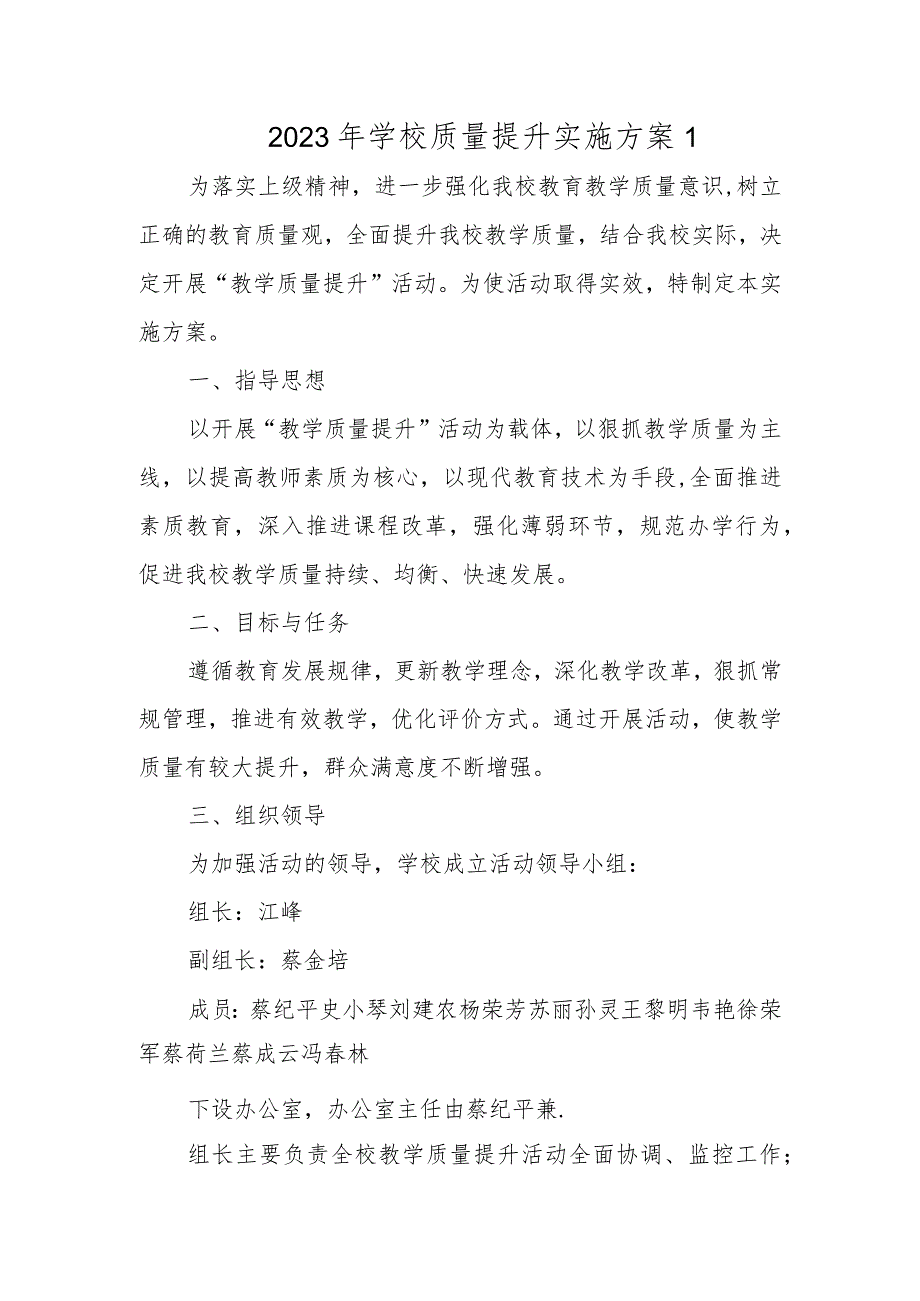 2023 年学校质量提升实施方案 1
为落实上级精神，进一步强化我校教育教学质量意识,树立
正确的教育质量观，全面提升我校教学质量，结合我校实际，决
定开展“教学质量提升”活动。为使活动取得实效，特制定本实
施方案。
一、指导思想
以开展“教学质量提升”活动为载体，以狠抓教学质量为主
线，以提高教师素质为核心，以现代教育技术为手段,全面推进
素质教育，深入推进课程改革，强化薄弱环节，规范办学行为，
促进我校教学质量持续、均衡、快速发展。
二、目标与任务
遵循教育发展规律，更新教学理念，深化教学改革，狠抓常
规管理，推进有效教学，优化评价方式。通过开展活动，使教学
质量有较大提升，群众满意度不断增强。
三、组织领导
为加强活动的领导，学校成立活动领导小组：
组长：江峰
副组长：蔡金培
成员：蔡纪平史小琴刘建农杨荣芳苏丽孙灵王黎明韦艳徐荣
军蔡荷兰蔡成云冯春林
下设办公室，办公室主任由蔡纪平兼.
组长主要负责全校教学质量提升活动全面协调、监控工作；